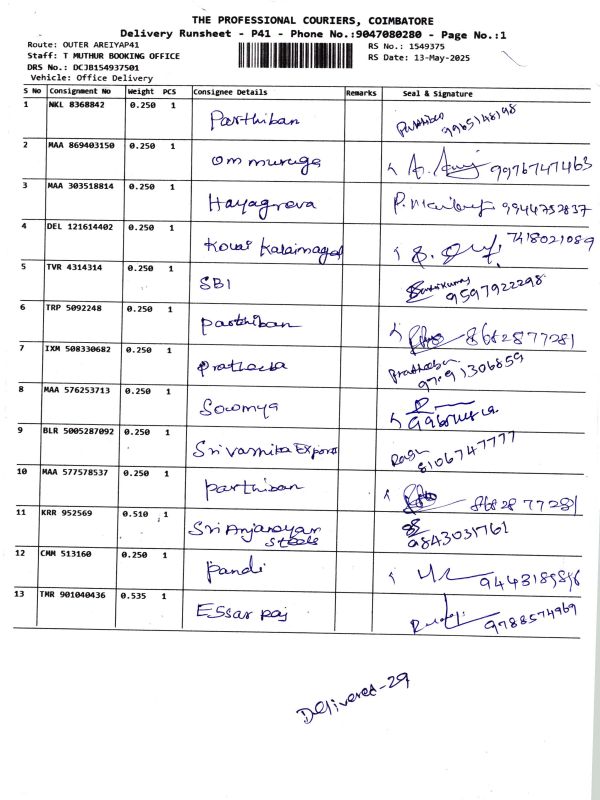 THE PROFESSIONAL COURIERS, COIMBATORE
Delivery Runsheet - P41 - Phone No.:9047080280 - Page No.:1
Route: OUTER AREIYAP41 RS No.: 1549375
Staff: T MUTHUR BOOKING OFFICE RS Date: 13-May-2025
DRS No.: DCJB154937501
Vehicle: Office Delivery
S No Consignment No Weight PCS Consignee Details Remarks Seal & Signature
1 NKL 8368842 0.250 1 Parthiban Parthiban 9965148198
2 MAA 869403150 0.250 1 om muruga 9976747463
3 MAA 303518814 0.250 1 Hayagreva 9944752837
4 DEL 121614402 0.250 1 Kovai Kalaimagal 7418021089
5 TVR 4314314 0.250 1 SBI 9597922298
6 TRP 5092248 0.250 1 parthiban 8682877281
7 IXM 508330682 0.250 1 pratheeba Pratheeba 9791306859
8 MAA 576253713 0.250 1 Sowmya
9 BLR 5005287092 0.250 1 Srivarnika Exports 8106747777
10 MAA 577578537 0.250 1 parthiban 8682877281
11 KRR 952569 0.510 1 Sri Anjaneyar Steels 9843031761
12 CMM 513160 0.250 1 pandi
13 TMR 901040436 0.535 1 Essar paj 9788574969
Delivered-29